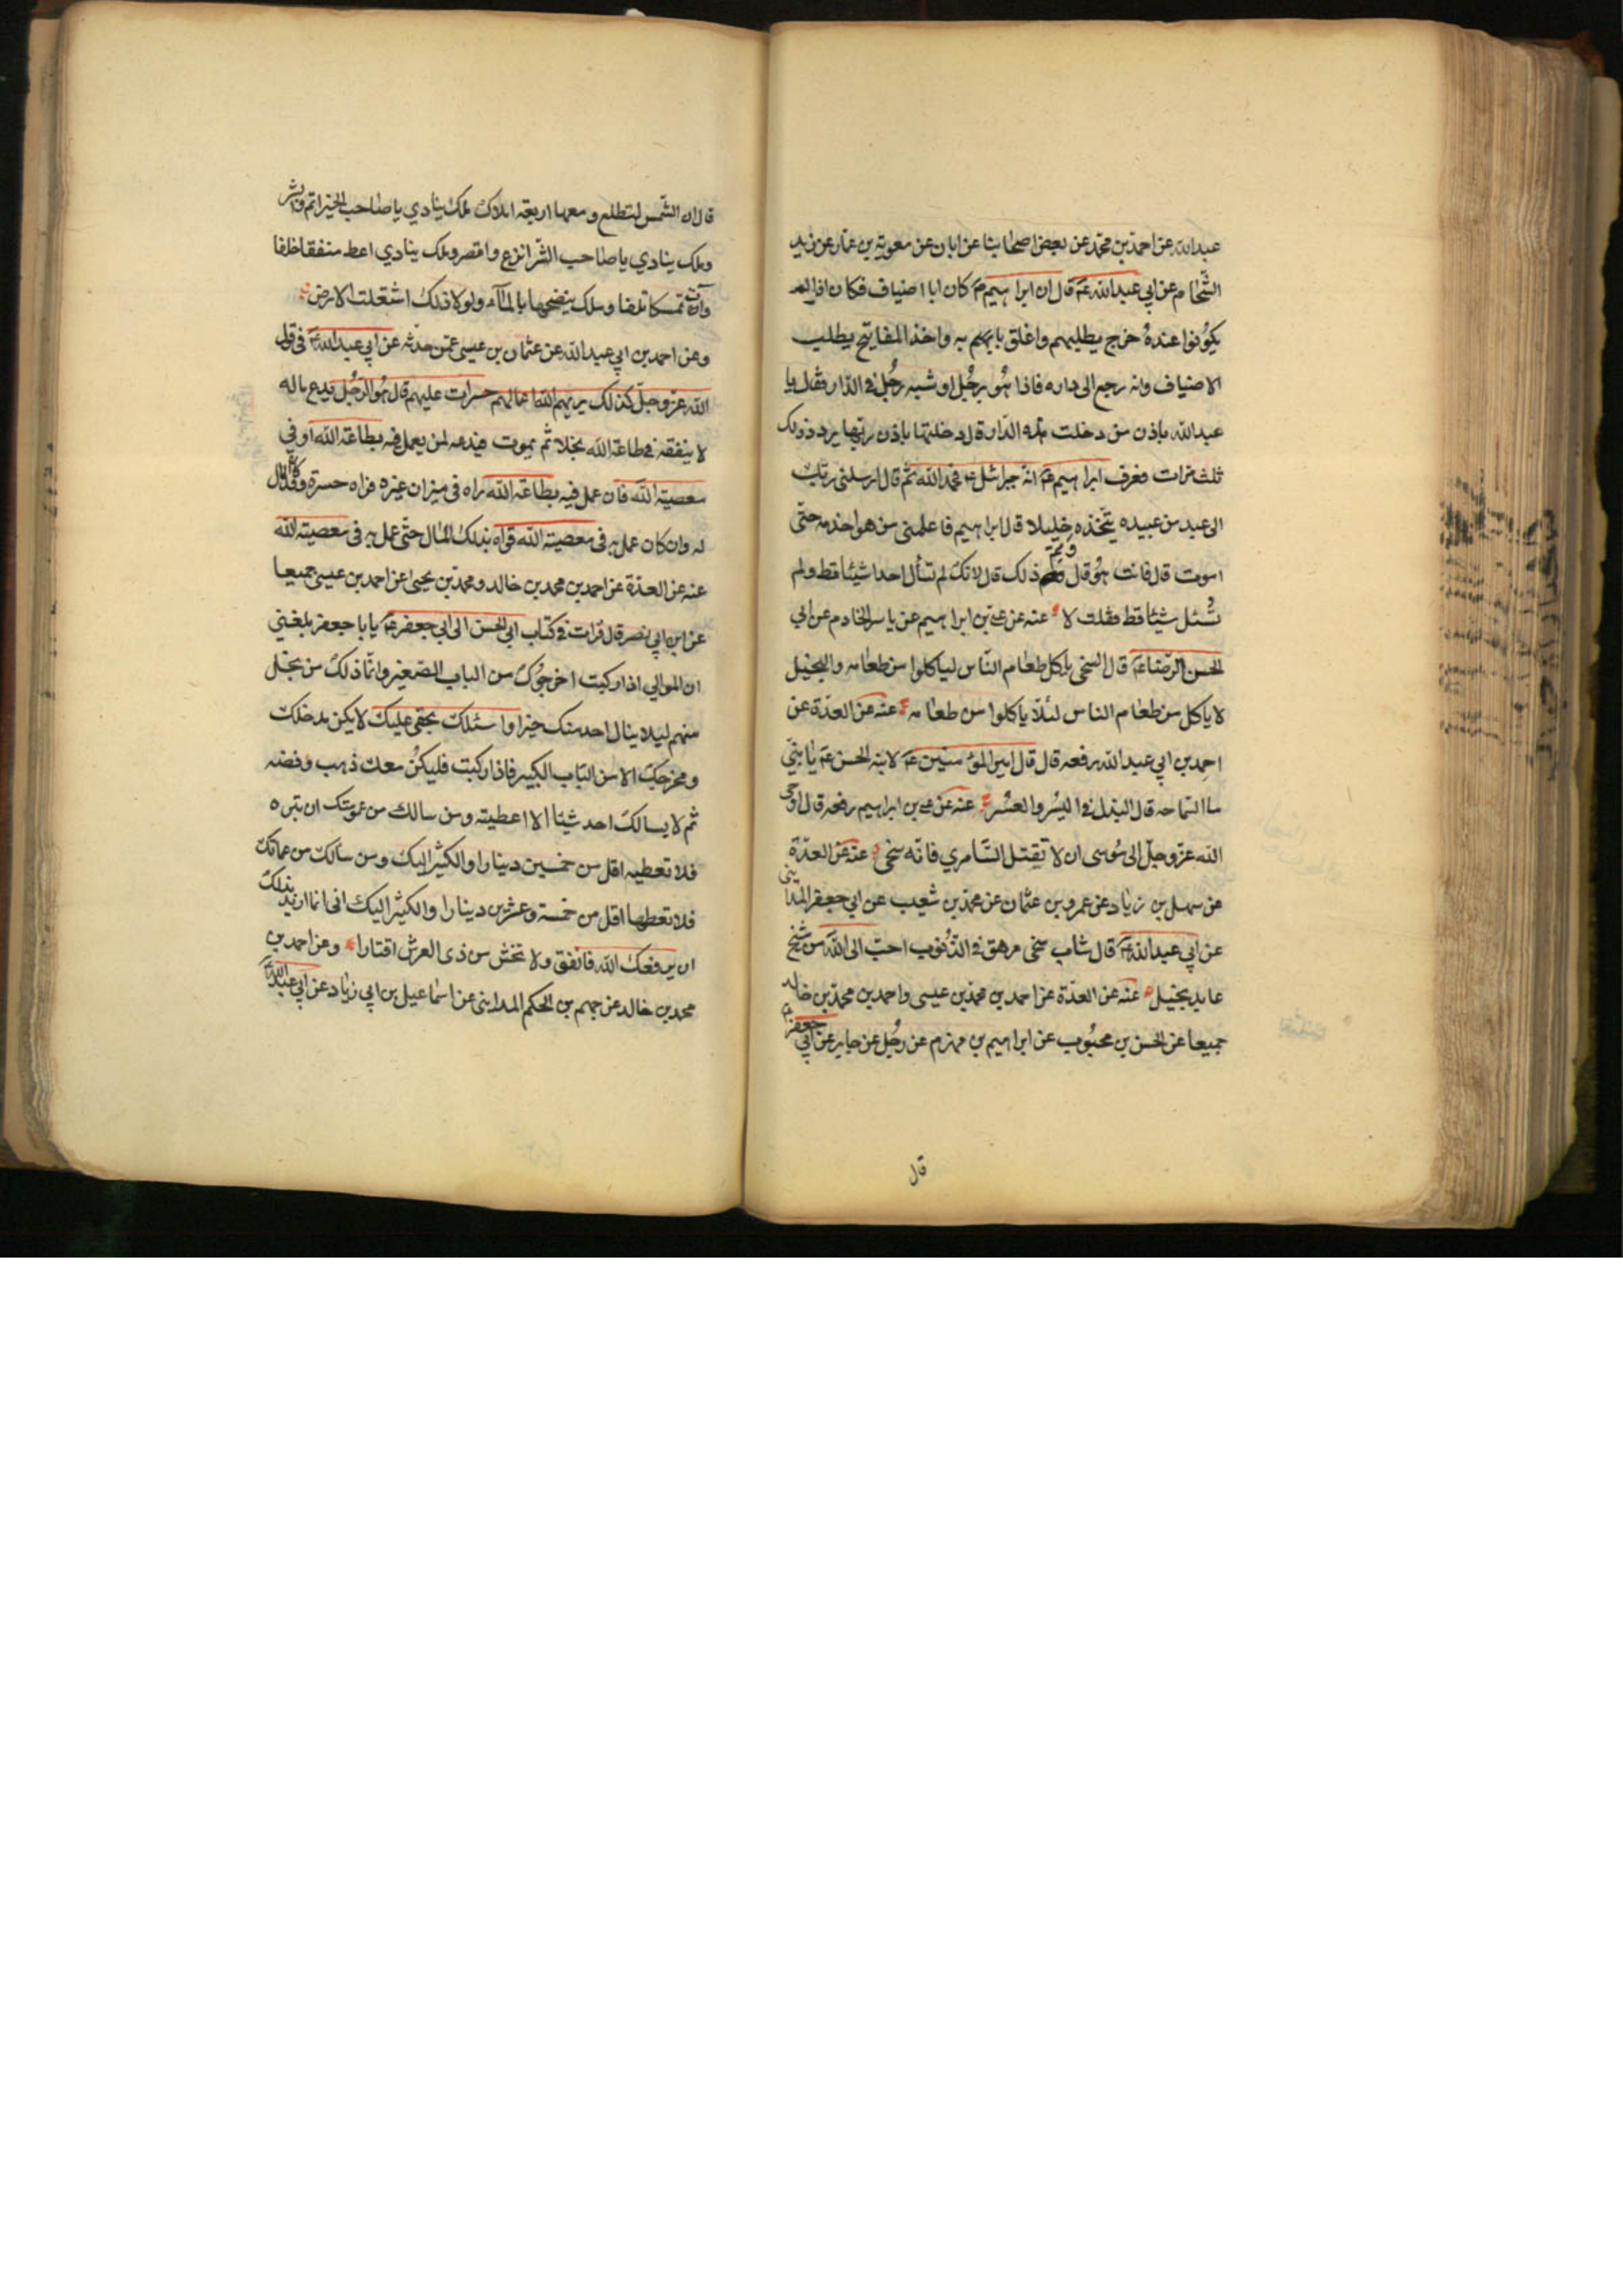 عبدالله عن احمد بن محمد عن بعض اصحابنا عن ابان عن معوية بن عمار عن زيد
الشحام عن ابي عبدالله عم قال ان ابراهيم عم كان ابا اضياف فكان اذا لم
يكونوا عنده خرج يطلبهم واغلق بابهم به واخذ المفاتيح يطلب
الاضياف وانه رجع الى داره فاذا هو برجل او شبه رجل في الدار فقال يا
عبدالله باذن من دخلت هذه الدار قال دخلتها باذن ربها يردد ذلك
ثلث مرات فعرف ابراهيم عم انه جبرائيل عم فحمد الله ثم قال ارسلني ربك
الى عبد من عبيده يتخذه خليلا قال ابراهيم فاعلمني من هو اخدمه حتى
اموت قال فانت هو قال ومم ذلك قال لانك لم تسأل احدا شيئا قط ولم
تسئل شيئا قط فقلت لا عنه عن علي بن ابراهيم عن ياسر الخادم عن ابي
الحسن الرضا عم قال السخي ياكل طعام الناس لياكلوا من طعامه والبخيل
لا ياكل من طعام الناس لئلا ياكلوا من طعامه عنه عن العدة عن
احمد بن ابي عبدالله رفعه قال قال امير المؤمنين عم لابنه الحسن عم يا بني
ما السماحه قال البذل في اليسر والعسر عنه عن علي بن ابراهيم رفعه قال اوحى
الله عز وجل الى موسى ان لا تقتل السامري فانه سخي عنه عن العدة
عن سهل بن زياد عن عمرو بن عثمان عن محمد بن شعيب عن ابي جعفر المدايني
عن ابي عبدالله عم قال شاب سخي مرهق في الذنوب احب الى الله من شيخ
عابد بخيل عنه عن العدة عن احمد بن محمد بن عيسى واحمد بن محمد بن خالد
جميعا عن الحسن بن محبوب عن ابراهيم بن مهزم عن رجل عن جابر عن ابي جعفر عم
قال
قال ان الشمس لتطلع ومعها اربعة املاك ملك ينادي يا صاحب الخير اتم وابشر
وملك ينادي يا صاحب الشر انزع واقصر وملك ينادي اعط منفقا خلفا
وآت ممسكا تلفا وملك ينضحها بالماء ولولا ذلك اشتعلت الارض
وعن احمد بن ابي عبدالله عن عثمان بن عيسى عمن حدثه عن ابي عبدالله عم في قول
الله عز وجل كذلك يريهم الله اعمالهم حسرات عليهم قال هو الرجل يدع ماله
لا ينفقه في طاعة الله بخلا ثم يموت فيدعه لمن يعمل فيه بطاعة الله او في
معصية الله فان عمل فيه بطاعة الله راه في ميزان غيره فراه حسرة وقد كان المال
له وان كان عمل به في معصية الله قواه بذلك المال حتى عمل به في معصية الله
عنه عن العدة عن احمد بن محمد بن خالد ومحمد بن يحيى عن احمد بن عيسى جميعا
عن ابن ابي نصر قال قرات في كتاب ابي الحسن الى ابي جعفر عم يا با جعفر بلغني
ان الموالي اذا ركبت اخرجوك من الباب الصغير وانما ذلك من بخل
منهم ليلا ينال احد منك خيرا واسئلك بحقي عليك لا يكن مدخلك
ومخرجك الا من الباب الكبير فاذا ركبت فليكن معك ذهب وفضه
ثم لا يسالك احد شيئا الا اعطيته ومن سالك من عمومتك ان تبره
فلا تعطيه اقل من خمسين دينارا والكثير اليك ومن سألك من عماتك
فلا تعطها اقل من خمسة وعشرين دينارا والكثير اليك اني انما اريد بذلك
ان يرفعك الله فانفق ولا تخش من ذي العرش اقتارا وعن احمد بن
محمد بن خالد عن جهم بن الحكم المدايني عن اسماعيل بن ابي زياد عن ابي عبدالله عم